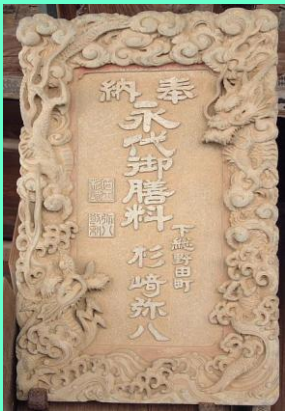 奉納
永代御膳料
下総野田町
杉崎弥八